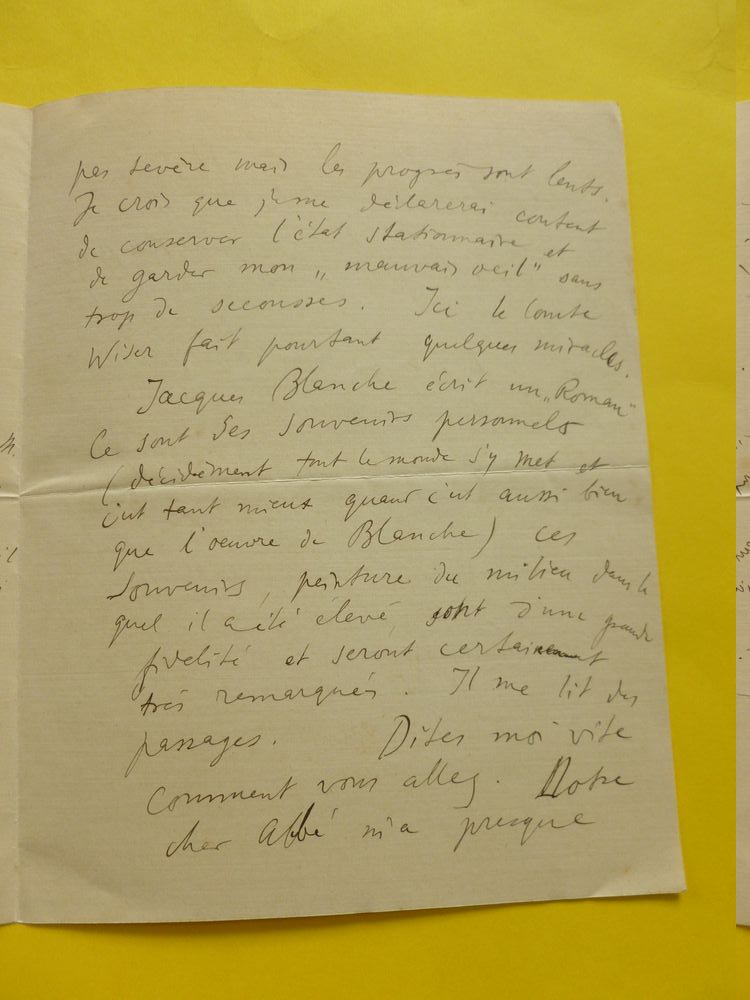 pas sevère mais les progrès sont lents.
Je crois que je me déclarerai content
de conserver l'état stationnaire et
de garder mon „mauvais oeil" sans
trop de secousses. Ici le Comte
Wiser fait pourtant quelques miracles.
Jacques Blanche écrit un „Roman"
Ce sont des souvenirs personnels
(décidément tout le monde s'y met et
c'est tant mieux quand c'est aussi bien
que l'oeuvre de Blanche) ces
souvenirs, peinture du milieu dans le
quel il a été élevé, sont d'une grande
fidelité et seront certainement
très remarqués. Il me lit des
passages. Dites moi vite
comment vous allez. Notre
cher Abbé m'a presque